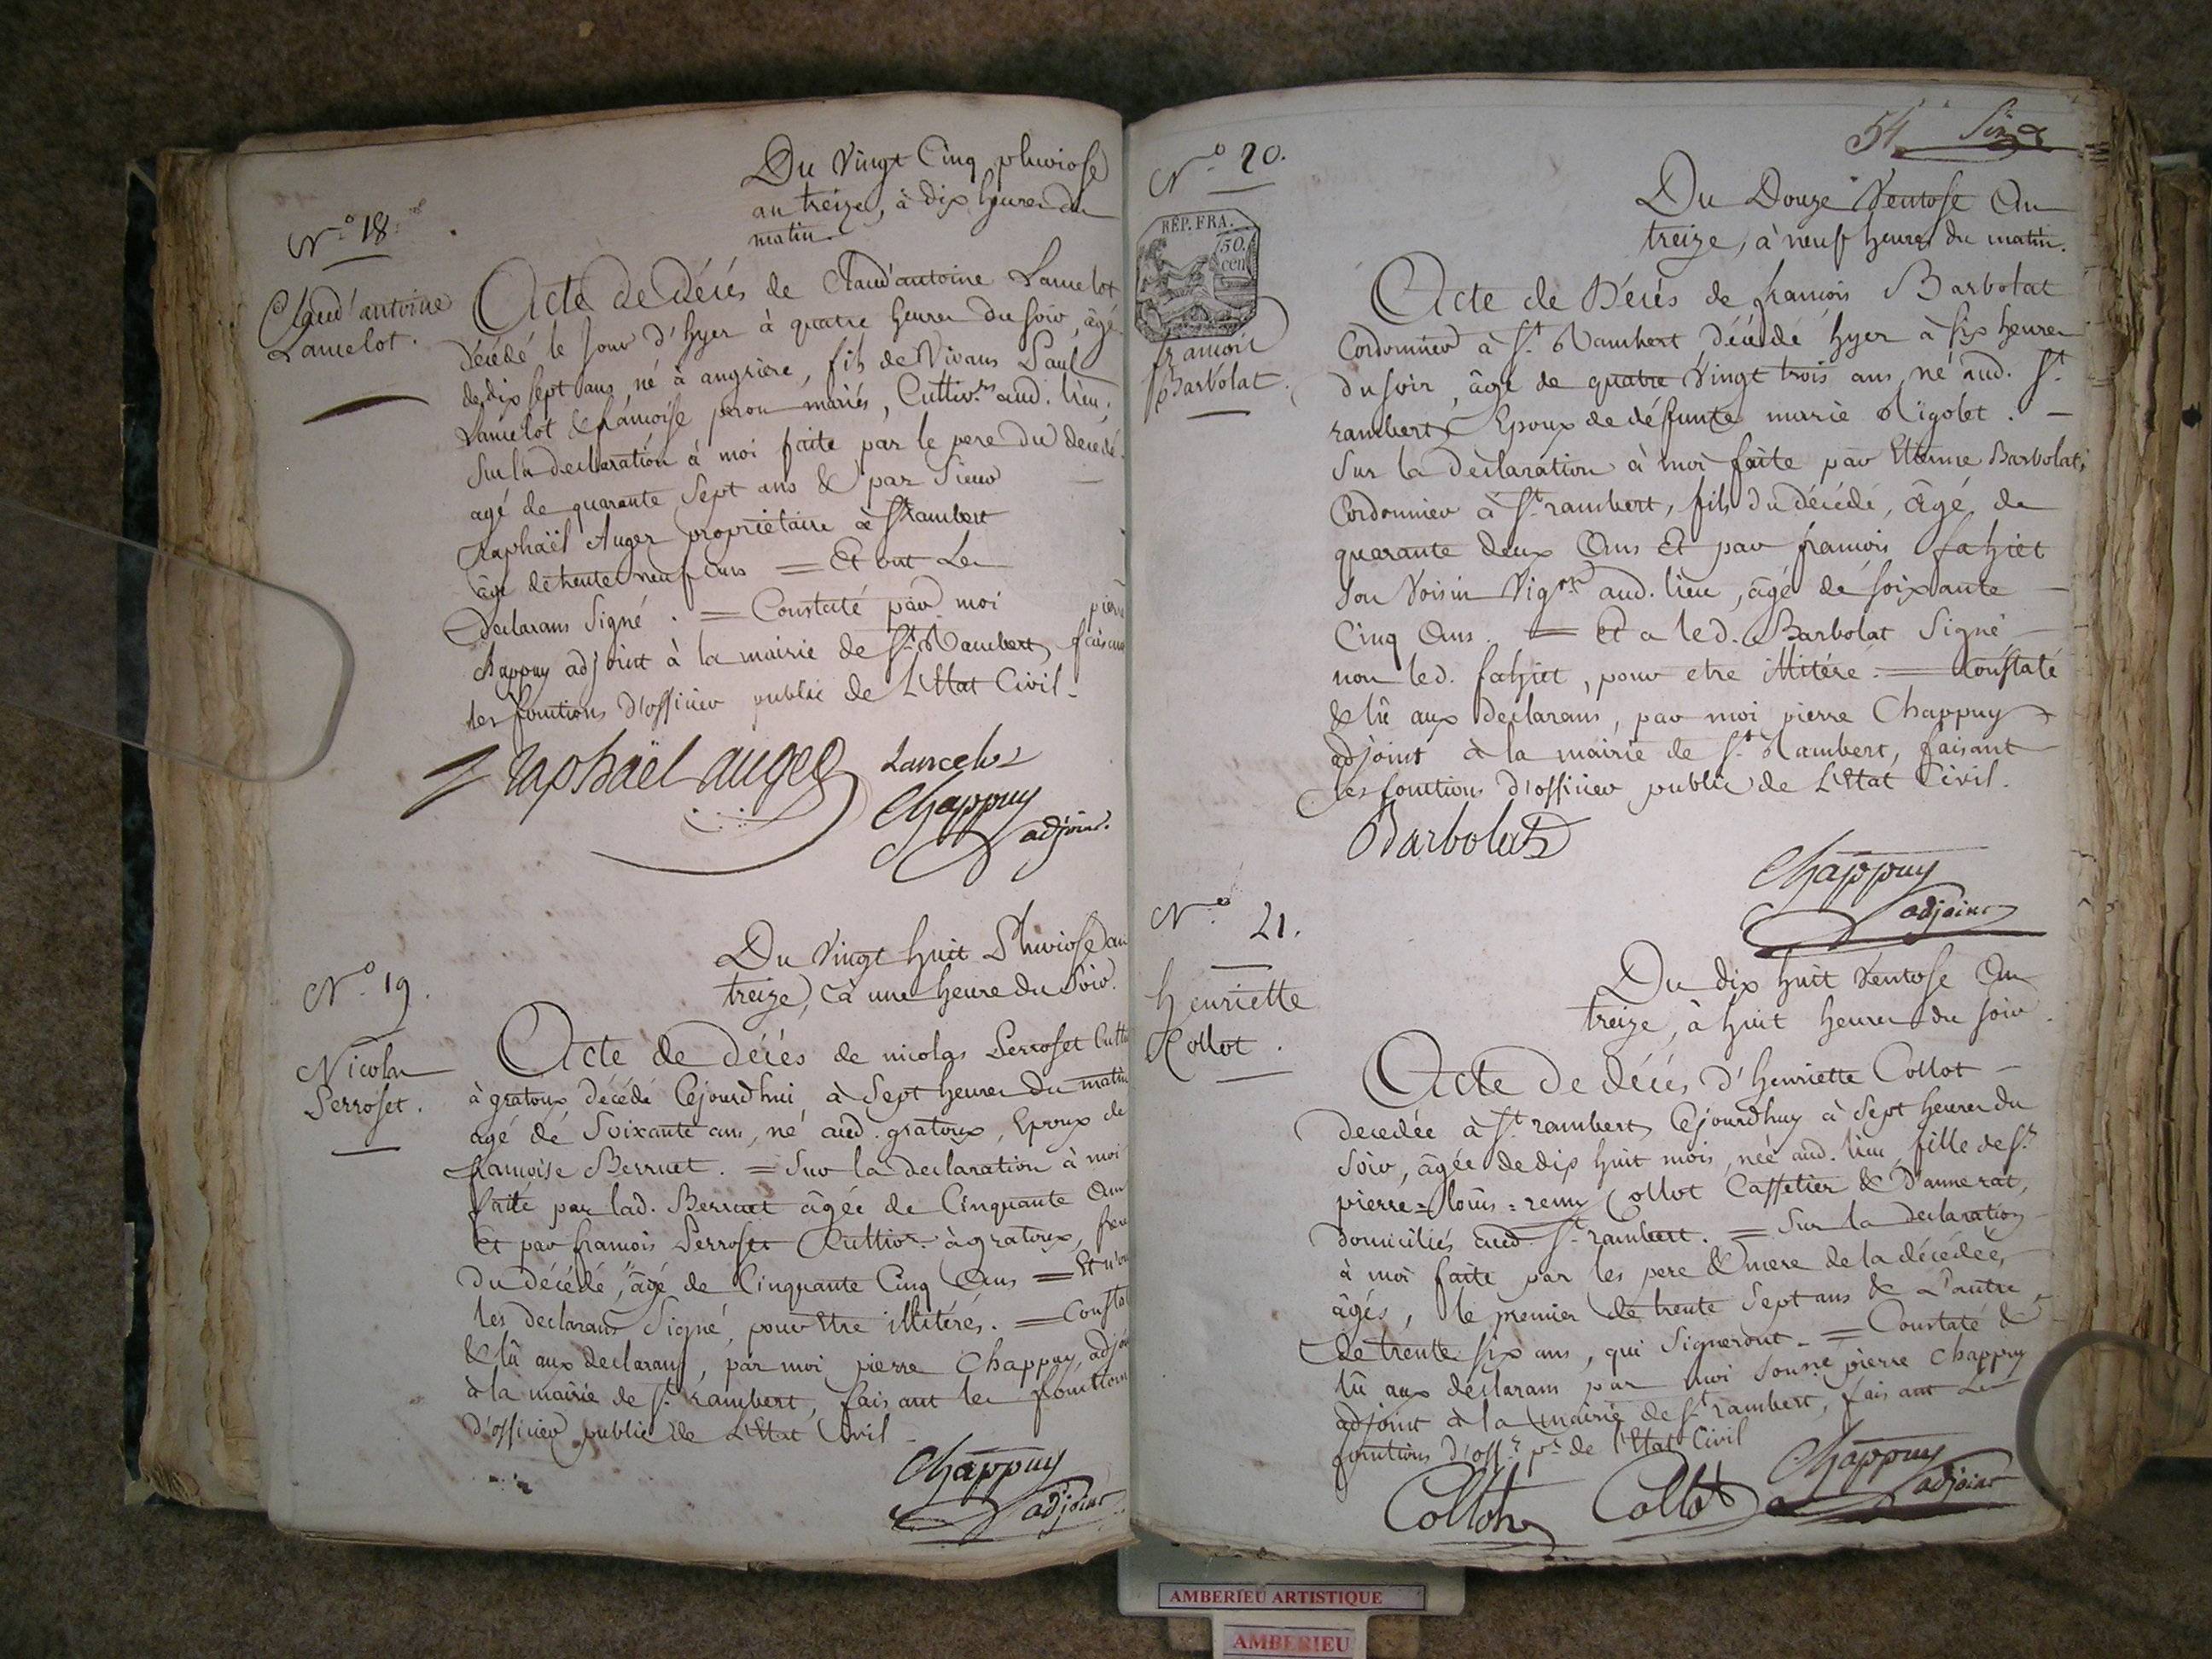 Du Vingt Cinq pluviose
an treize, à dix heures du
matin.
N.o 18.
Claud'antoine
Lancelot.
Acte de décés de Claud'antoine Lancelot
décédé le jour d'hyer à quatre heures du soir, âgé
de dix sept ans, né à angriere, fils de Vivans Paul
Lancelot & francoise peron mariés, Cultiv.rs aud. lieu.
Sur la declaration à moi faite par le pere du decedé
agé de quarante Sept ans & par Sieur
Raphaël Auger propriétaire à St Rambert
âgé de trente neuf ans = Et ont Les
Declarans Signé. = Constaté par moi pierre
Chappuy adjoint à la mairie de St. Rambert, faisant
les fonctions d'officier public de L'Etat Civil -
raphaël auger Lancelot
Chappuy
adjoint.
Du Vingt huit Pluviose an
treize, à une heure du Soir.
N.o 19.
Nicolas
Perroset.
Acte de décés de nicolas Perroset Cultiv
à gratoux décédé Cejourd'hui à Sept heures du matin
agé de Soixante ans, né aud. gratoux, Epoux de
francoise Berruet. = Sur la declaration à moi
faite par lad. Berruet âgée de Cinquante Ans
Et par francois Perroset Cultiv.r à gratoux, frere
du décédé, âgé de Cinquante Cinq Ans = Et n'ont
les declarans Signé, pour être illitérés. = Constaté
& lû aux declarans, par moi pierre Chappuy, adjoint
à la mairie de St. rambert, faisant les fonctions
d'officier public de L'Etat Civil -
Chappuy
adjoint
54 Six
N.o 20.
RÉP. FRA.
50.
cen
francois
Barbolat.
Du Douze Ventose An
treize, à neuf heures du matin.
Acte de Décés de francois Barbolat
Cordonnier à St. Rambert Décédé hyer à Six heures
du soir, âgé de quatre Vingt trois ans, né aud. St.
rambert, Epoux de défunte marie Rigolet. -
Sur la déclaration à moi faite par Etienne Barbolat,
Cordonnier à St. rambert, fils du décédé, âgé de
quarante deux Ans Et par francois fahiet
Son Voisin Vig.on aud. lieu, âgé de Soixante -
Cinq Ans. = Et a led. Barbolat Signé -
non led. fahiet, pour etre illitére. = Constaté
& lû aux declarans, par moi pierre Chappuy
adjoint à la mairie de St. Rambert, faisant
les fonctions d'officier public de L'Etat Civil.
Barbolat
Chappuy
adjoint
N.o 21.
henriette
Collot.
Du dix huit Ventose An
treize, à huit heures du soir.
Acte de décés d'henriette Collot -
decedée à St. rambert Cejourdhuy à Sept heures du
Soir, âgée de dix huit mois, née aud. lieu, fille de Sr.
pierre = loüis = remy Collot Caffetier & D'anne rat,
domiciliés aud. St. rambert. = Sur la declaration
à moi faite par les pere & mere de la décédée,
âgés, le premier de trente Sept ans & L'autre
de trente Six ans, qui Signeront - = Constaté &
lû aux déclarans par moi sousné pierre Chappuy
adjoint à la mairie de St. rambert, faisant Les
fonctions d'off.r p.c de l'Etat Civil
Collot Collot Chappuy
adjoint
AMBERIEU ARTISTIQUE
AMBERIEU